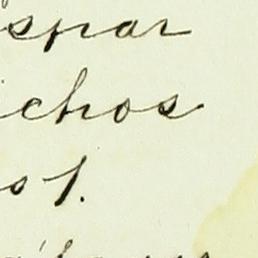 spar
ichos
s 1.